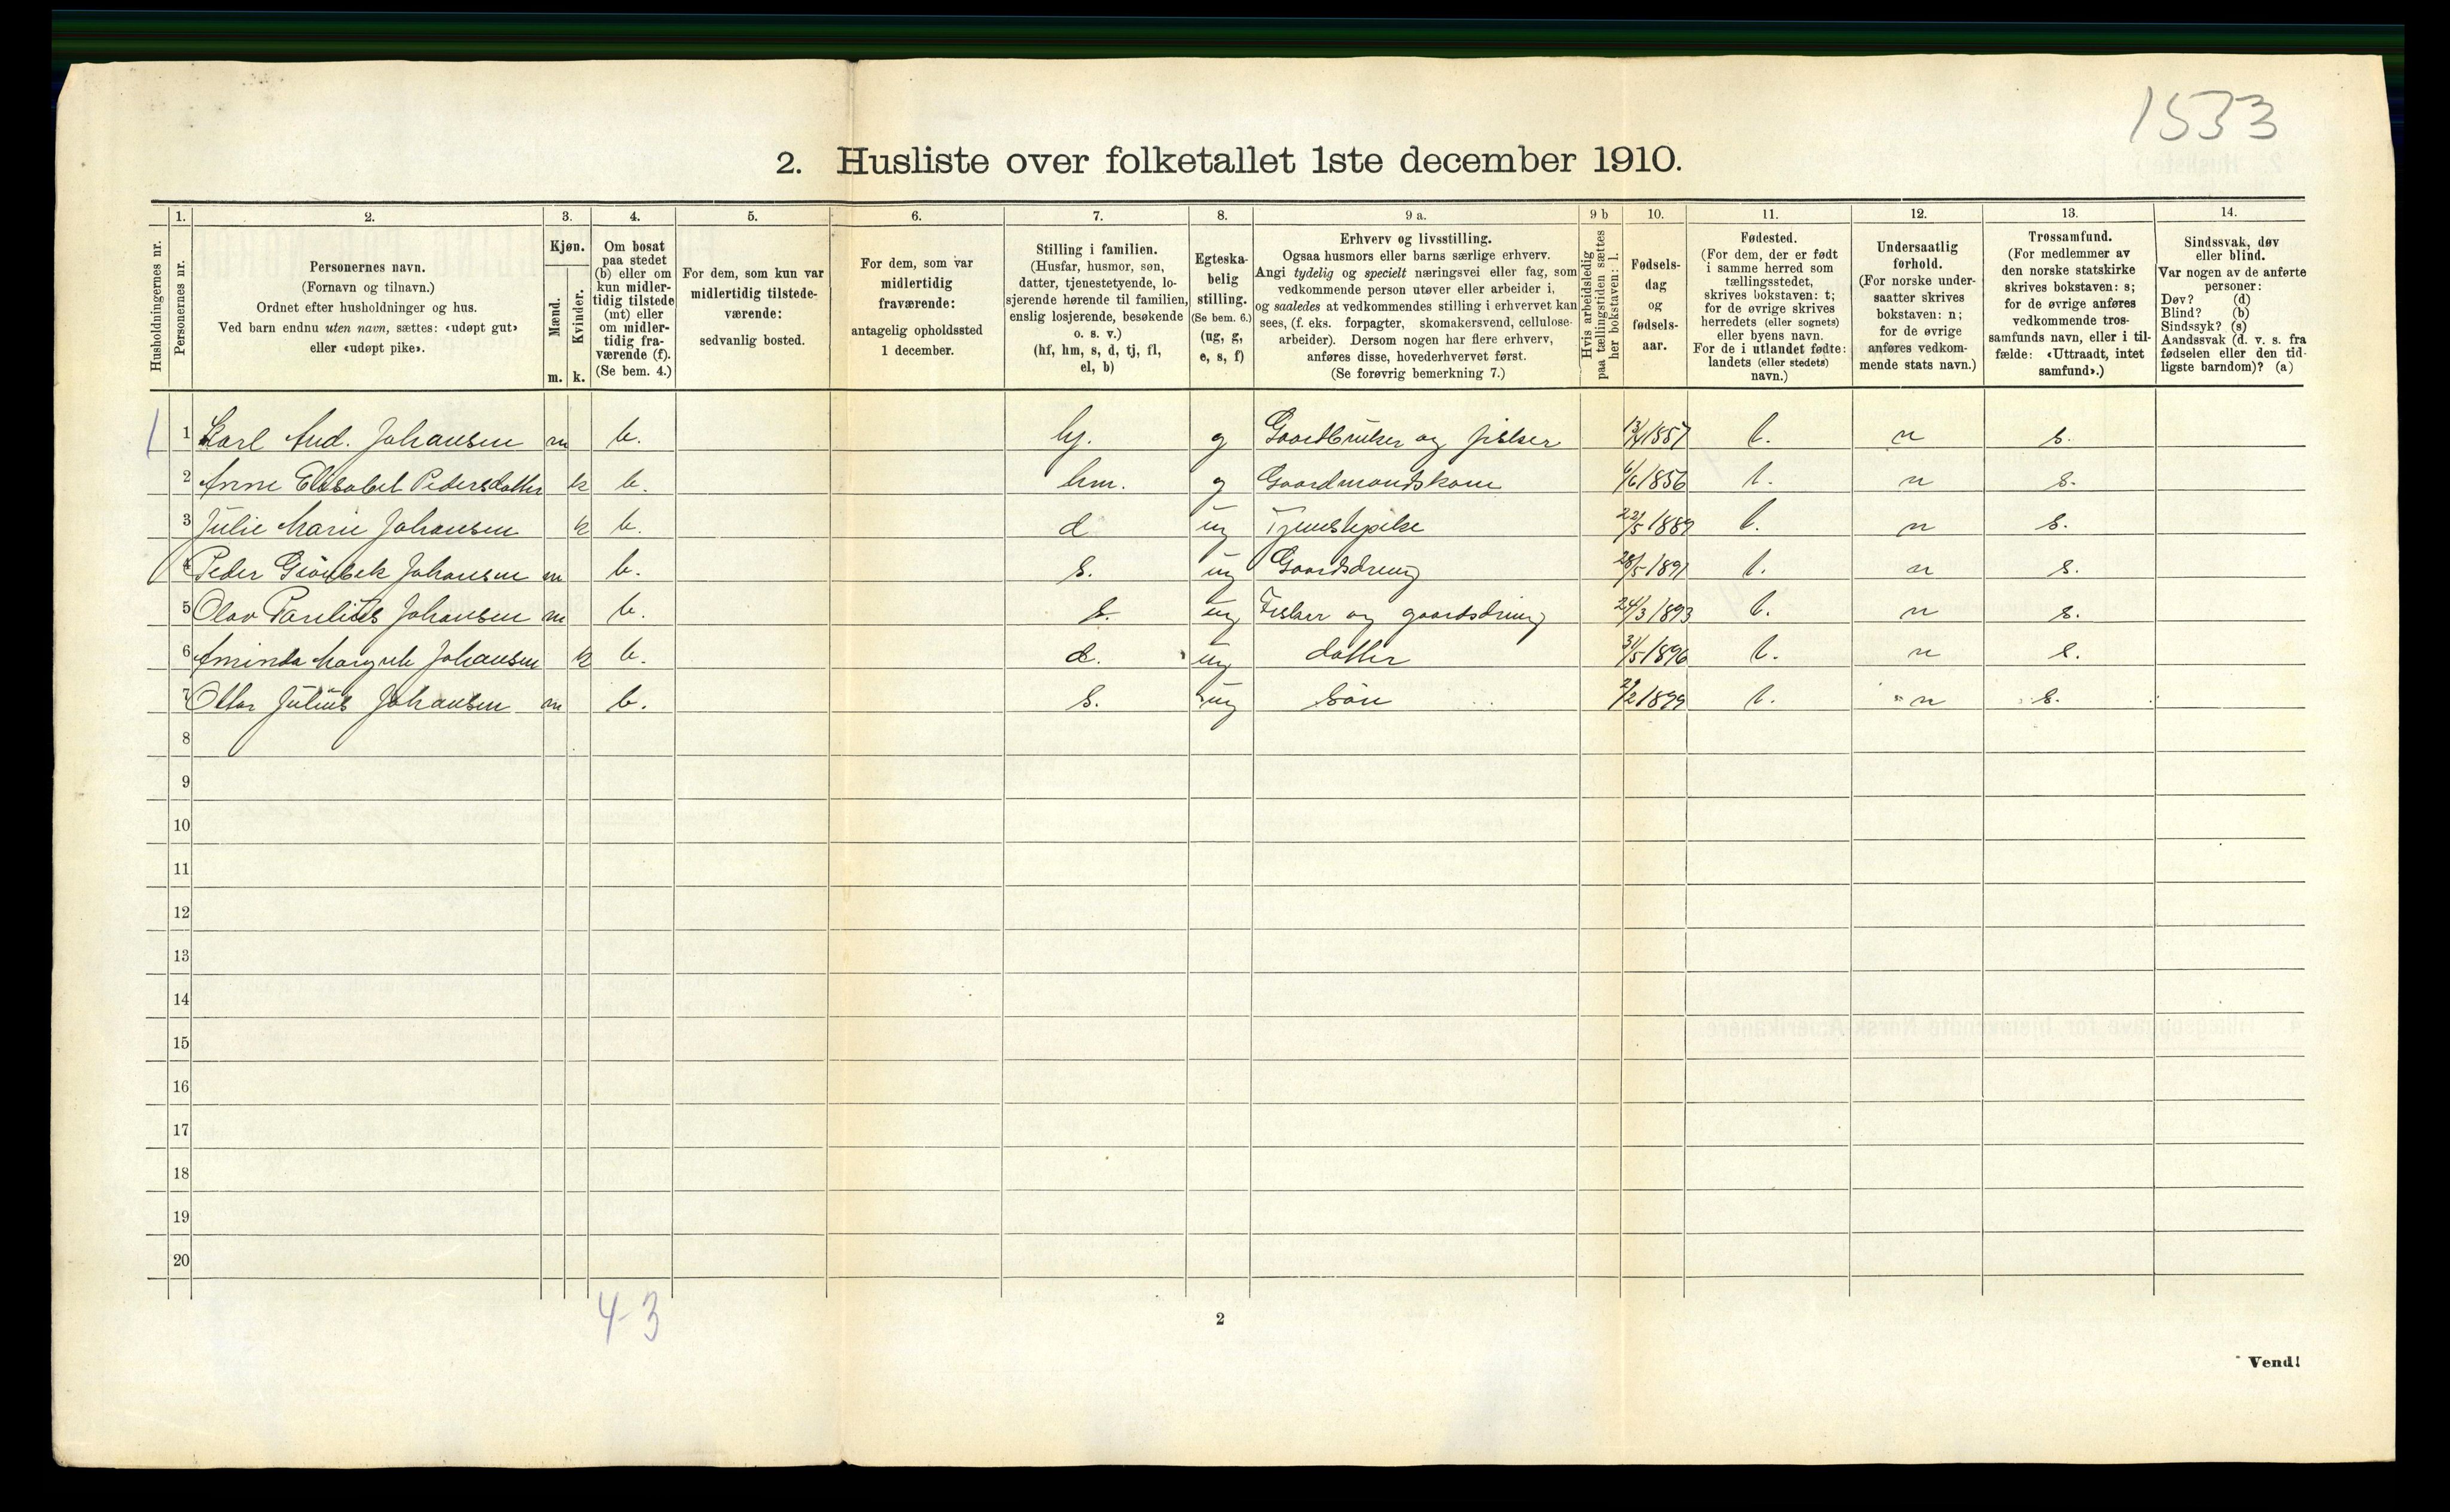 1533
2. Husliste over folketallet 1ste december 1910.
Husholdningernes nr.
1.
Personernes nr.
2.
Personernes navn.
(Fornavn og tilnavn.)
Ordnet efter husholdninger og hus.
Ved barn endnu uten navn, sættes: «udøpt gut»
eller «udøpt pike».
3.
Kjøn.
Mænd.
Kvinder.
m. k.
4.
Om bosat
paa stedet
(b) eller om
kun midler-
tidig tilstede
(mt) eller
om midler-
tidig fra-
værende (f).
(Se bem. 4.)
5.
For dem, som kun var
midlertidig tilstede-
værende:
sedvanlig bosted.
6.
For dem, som var
midlertidig
fraværende:
antagelig opholdssted
1 december.
7.
Stilling i familien.
(Husfar, husmor, søn,
datter, tjenestetyende, lo-
sjerende hørende til familien,
enslig losjerende, besøkende
o. s. v.)
(hf, hm, s, d, tj, fl,
el, b)
8.
Egteska-
belig
stilling.
(Se bem. 6.)
(ug, g,
e, s, f)
9 a.
Erhverv og livsstilling.
Ogsaa husmors eller barns særlige erhverv.
Angi tydelig og specielt næringsvei eller fag, som
vedkommende person utøver eller arbeider i,
og saaledes at vedkommendes stilling i erhvervet kan
sees, (f. eks. forpagter, skomakersvend, cellulose-
arbeider). Dersom nogen har flere erhverv,
anføres disse, hovederhvervet først.
(Se forøvrig bemerkning 7.)
9 b
Hvis arbeidsledig
paa tællingstiden sættes
her bokstaven: l.
10.
Fødsels-
dag
og
fødsels-
aar.
11.
Fødested.
(For dem, der er født
i samme herred som
tællingsstedet,
skrives bokstaven: t;
for de øvrige skrives
herredets (eller sognets)
eller byens navn.
For de i utlandet fødte:
landets (eller stedets)
navn.)
12.
Undersaatlig
forhold.
(For norske under-
saatter skrives
bokstaven: n;
for de øvrige
anføres vedkom-
mende stats navn.)
13.
Trossamfund.
(For medlemmer av
den norske statskirke
skrives bokstaven: s;
for de øvrige anføres
vedkommende tros-
samfunds navn, eller i til-
fælde: «Uttraadt, intet
samfund».)
14.
Sindssvak, døv
eller blind.
Var nogen av de anførte
personer:
Døv? (d)
Blind? (b)
Sindssyk? (s)
Aandssvak (d. v. s. fra
fødselen eller den tid-
ligste barndom)? (a)
1 Karl And. Johansen m b. hf. g Gaardbruker og fisker t. n s.
2 Anne Elisabet Pedersdatter k b. hm. g Gaardmandskone 6/6 1856 t. n s.
3 Julie Marie Johansen k b. d ug Tjenestepike 1889 t. n s.
4 Peder Grönbek Johansen m b. s. ug Gaardsdreng 28/5 1891 t. n s.
5 Olav Paulius Johansen m b. s. ug Fisker og gaardsdreng 24/3 1893 t. n s.
6 Aminda Margrete Johansen k b. d. ug datter 31/5 1896 t. n s.
7 Ottar Julius Johansen m b. s. ug Sön 1899 t. n s.
8
9
10
11
12
13
14
15
16
17
18
19
20
4-3
2
Vend!